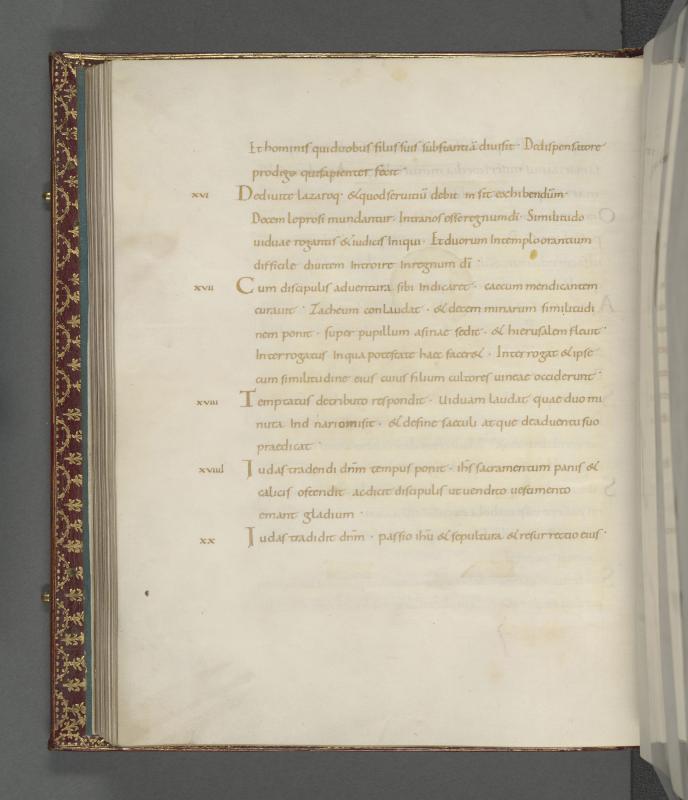 Et hominis qui duobus filiis suis substantiā diuisit · De dispensatore
prodigo qui sapienter fecit ·
XVI De diuite lazaroq· & quod seruitiū debit in sit exhibendum·
Decem leprosi mundantur· Intra nos esse regnum di· Similitudo
uiduae rogantis & iudicis Iniqui · Et duorum In templo orantium
difficile diuitem Introire In regnum dī ·
XVII Cum discipulis aduentura sibi Indicaret · caecum mendicantem
curauit · Zacheum conlaudat · & decem minarum similitudi
nem ponit · super pupillum asinae sedit · & hierusalem fleuit·
Interrogatus In qua potestate haec facer& · Interrogat & ipse
cum similitudine eius cuius filium cultores uineae occiderunt·
XVIII Temptatus de tributo respondit · Uiduam laudat quae duo mi
nuta · & de fine saeculi atque de aduentu suo
praedicat ·
XVIIII Iudas tradendi dn̄m tempus ponit · ih̄s sacramentum panis &
calicis ostendit ac dicit discipulis ut uendito uestimento
emant gladium ·
XX Iudas tradidit dn̄m · passio ihū & sepultura & resurrectio eius·